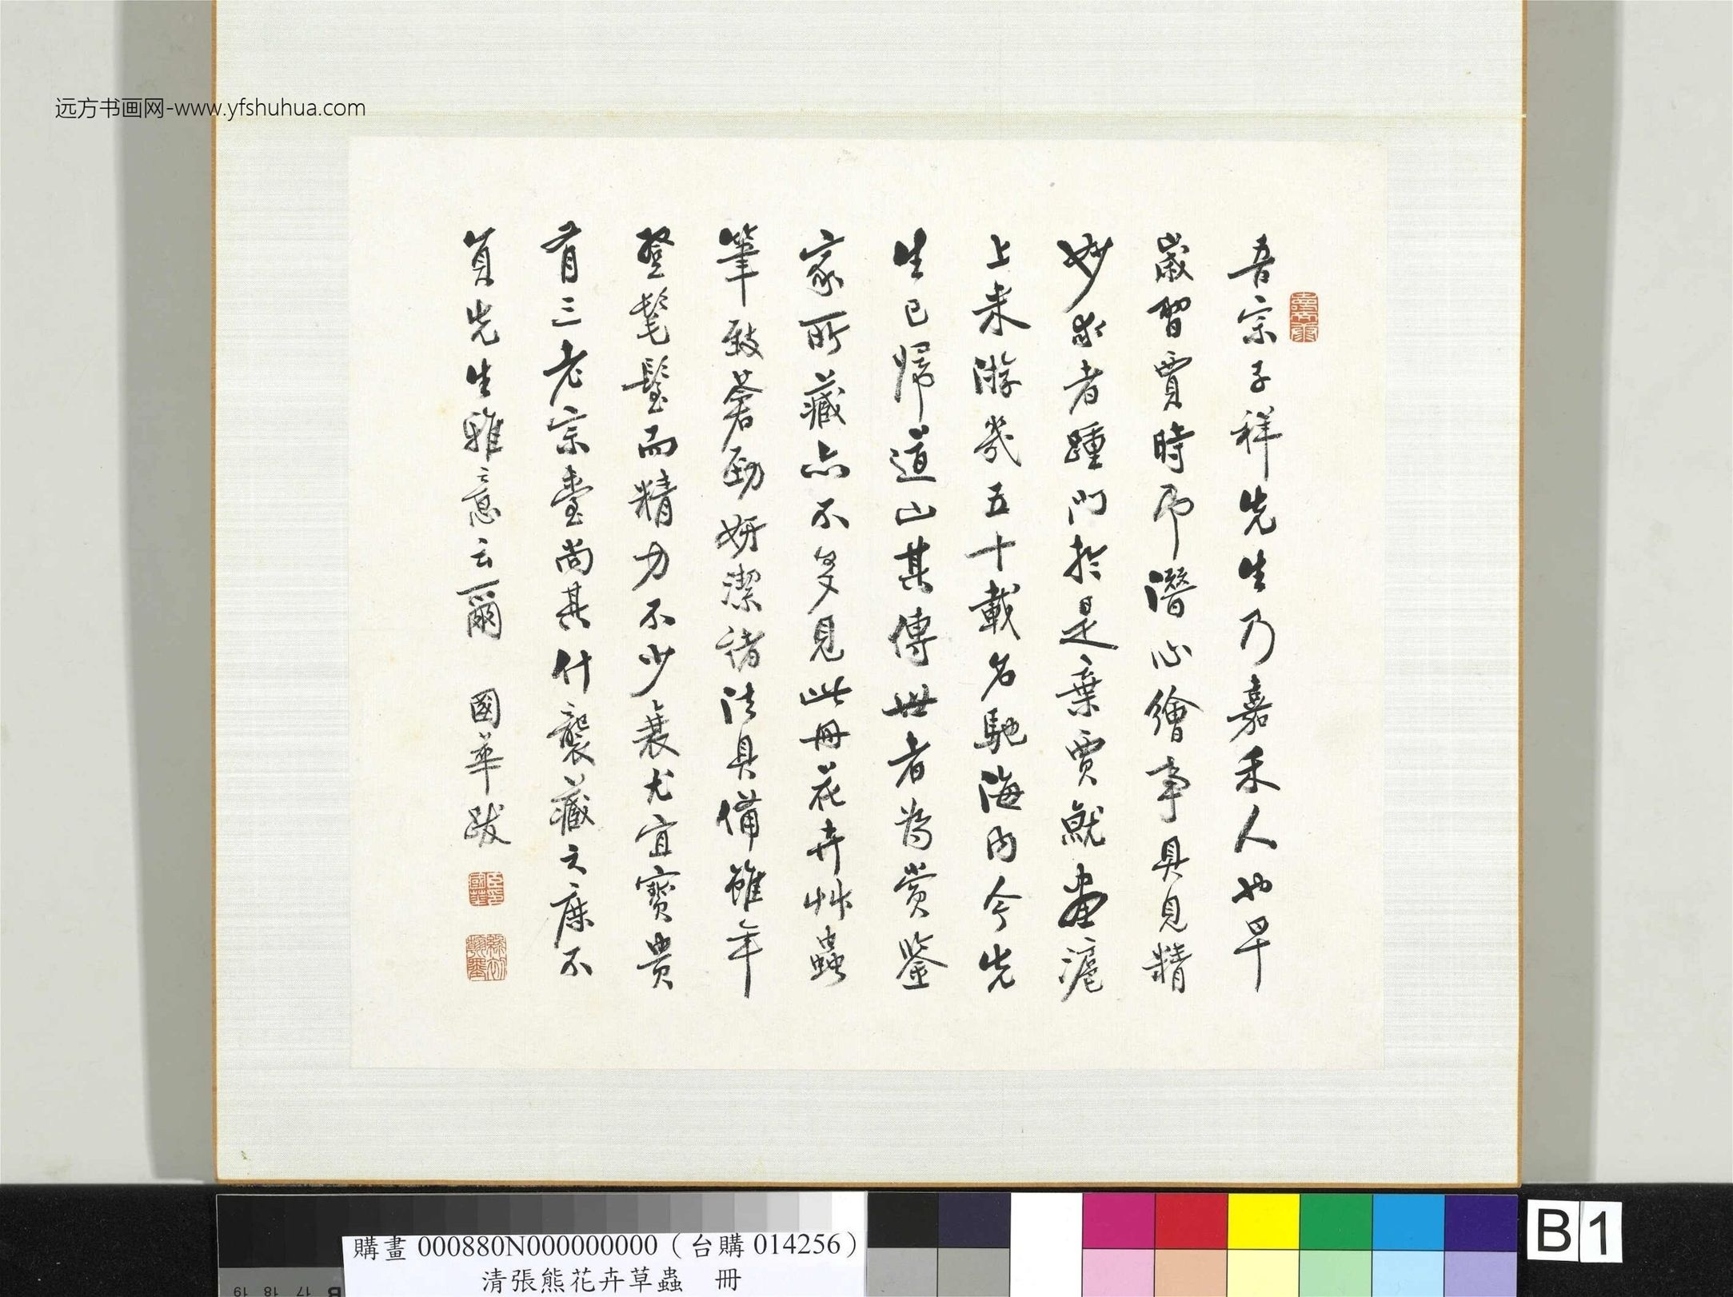 远方书画网-www.yfshuhua.com
吾宗子祥先生乃嘉禾人也早
歲習賈時即潛心繪事具見精
妙求者踵門於是棄賈鬻畫滬
上來游幾五十載名馳海內今先
生已歸道山其傳世者為賞鑒
家所藏亦不多見此冊花卉艸蟲
筆致蒼勁妍潔諸法具備雖年
登耄耋而精力不少衰尤宜寶貴
有三老宗臺尚其什襲藏之庶不
負先生雅意云爾 國華跋
購畫 000880N000000000（台購 014256）
清張熊花卉草蟲 冊
B1
19 18 17 B